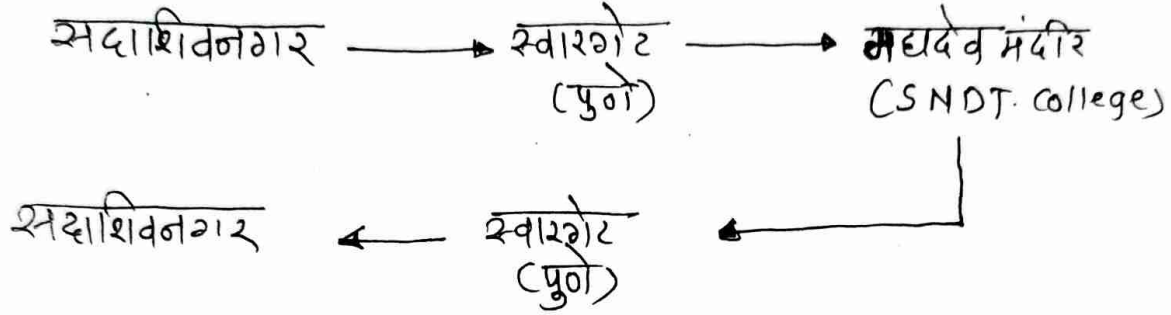 सदाशिवनगर → स्वारगेट → महादेव मंदीर
(पुणे) (SNDT. College)
सदाशिवनगर ← स्वारगेट ←
(पुणे)